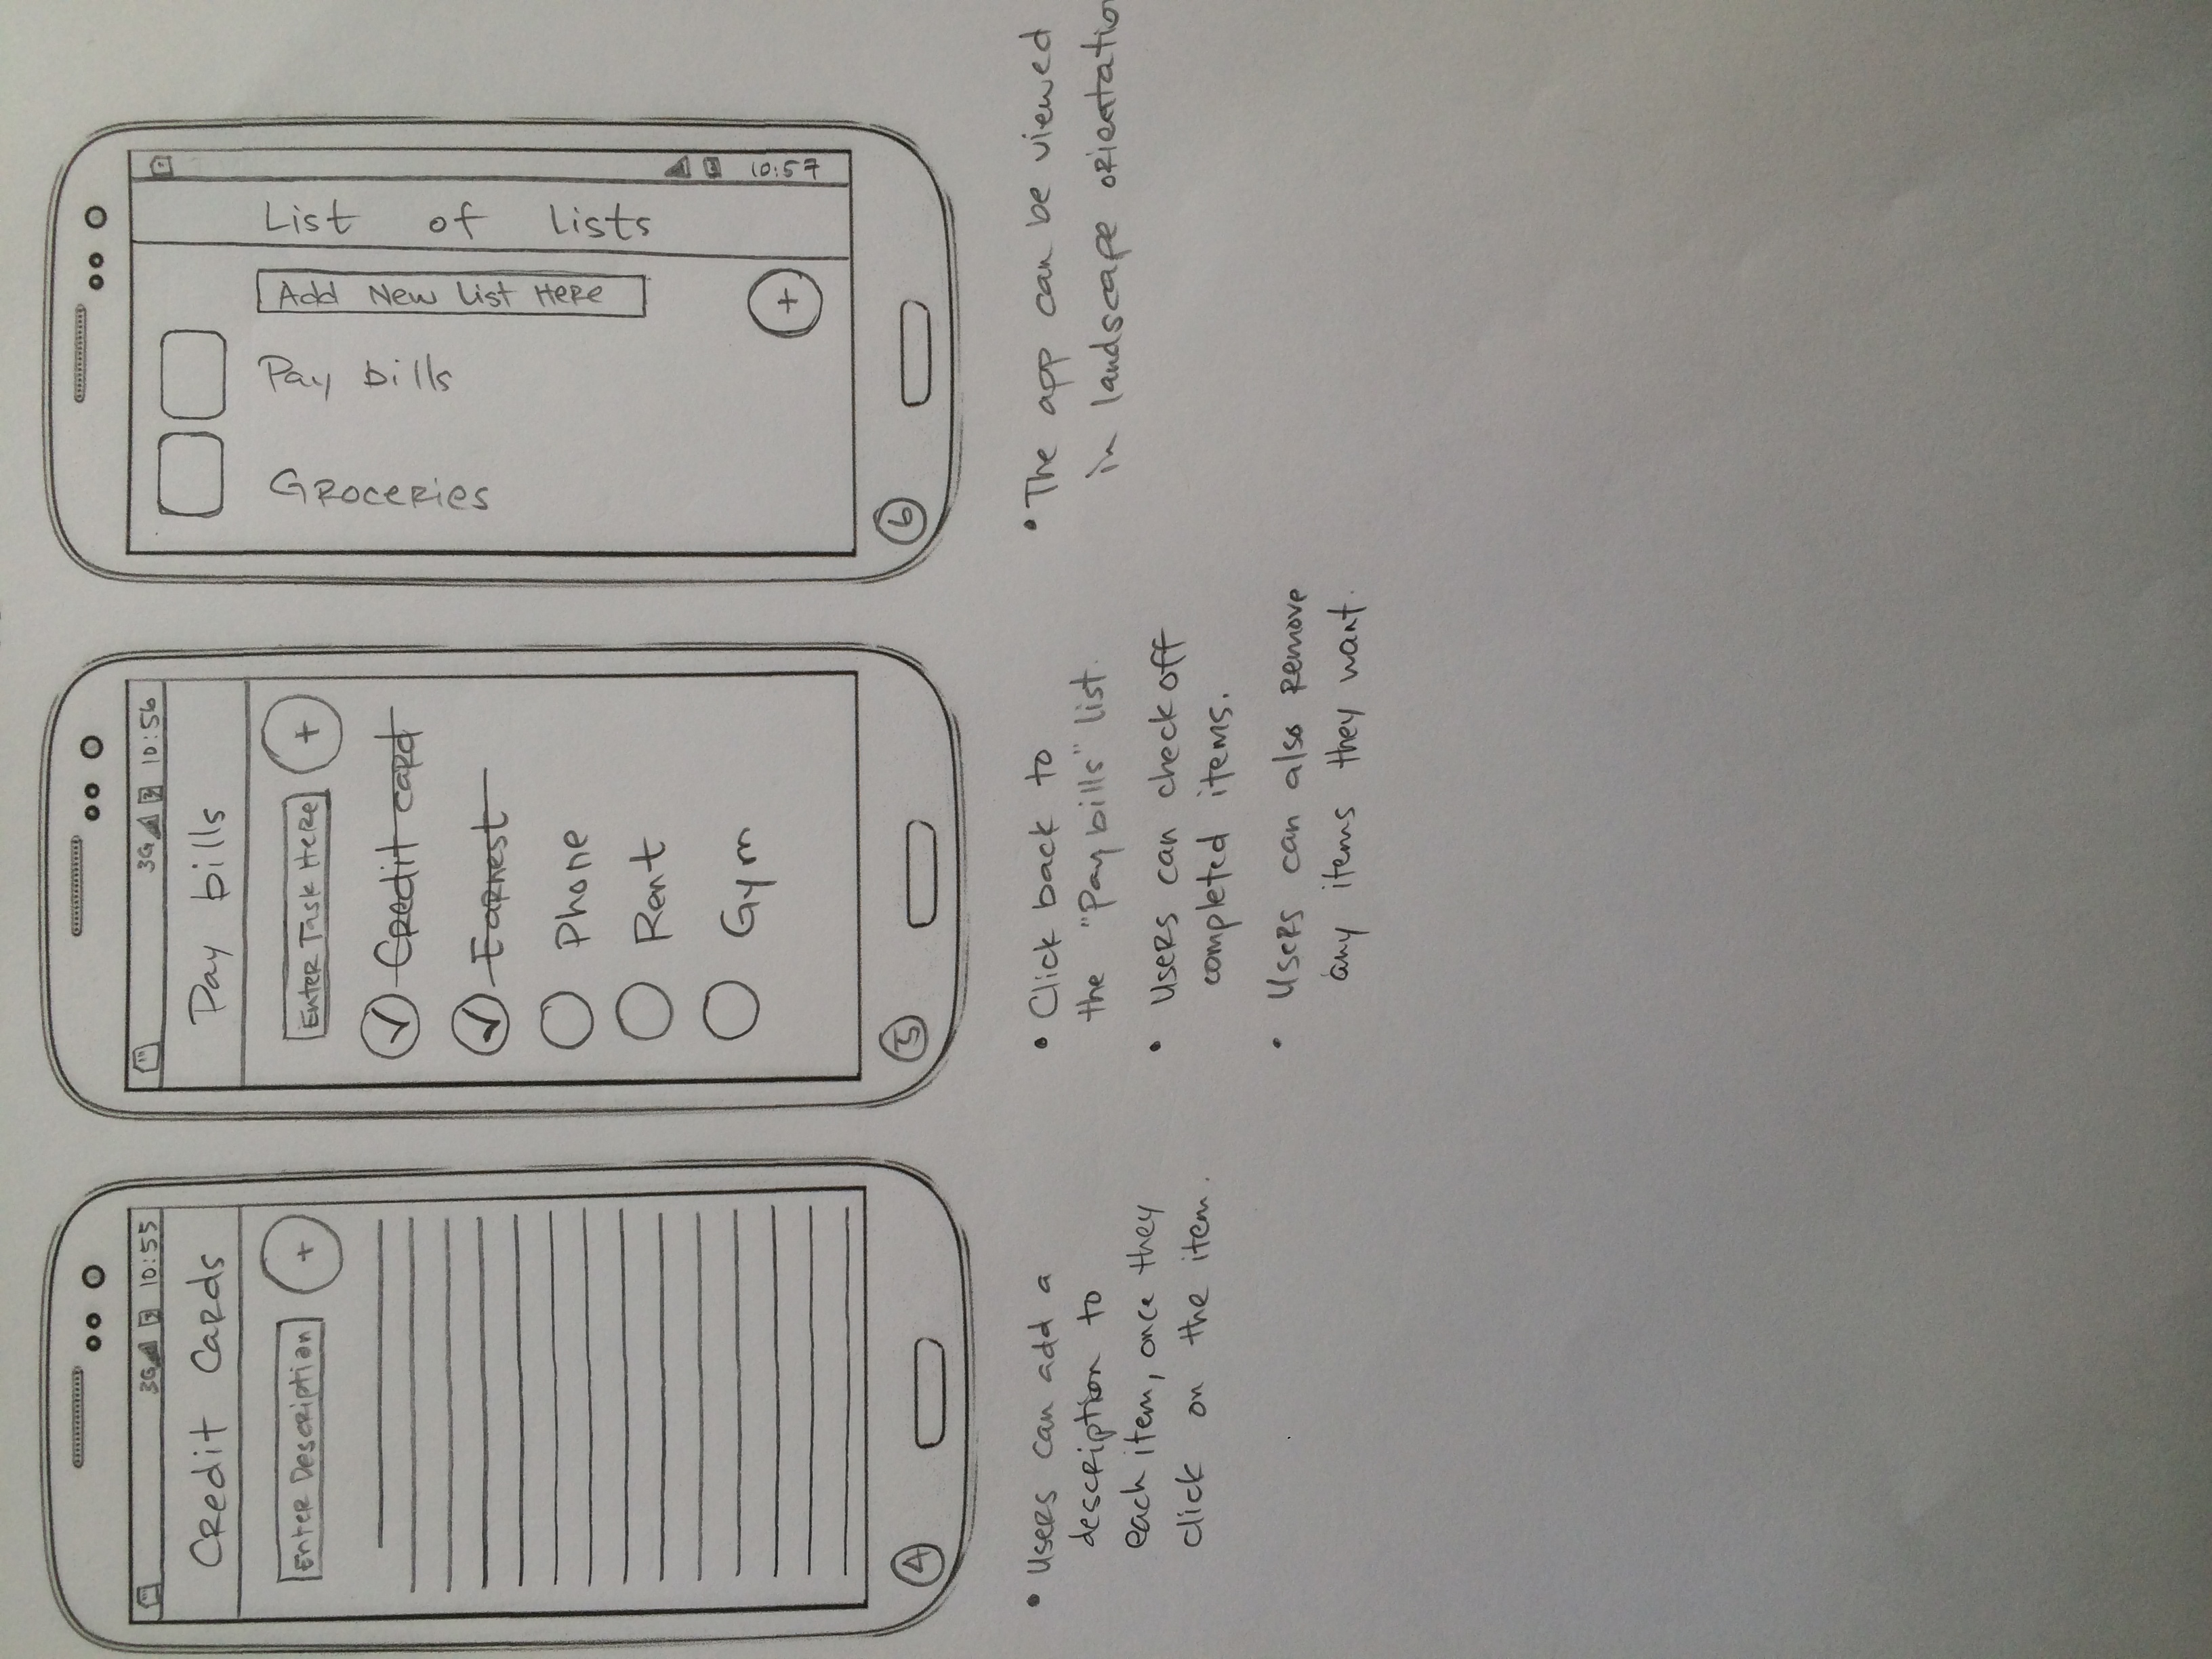 3G 10:55
Credit Cards
Enter Description +
4
• Users can add a
description to
each item, once they
click on the item.
3G 10:56
Pay bills
Enter Task Here +
Credit card
Earnest
Phone
Rent
Gym
5
• Click back to
the "Pay bills" list.
• Users can check off
completed items.
• Users can also remove
any items they want.
10:57
List of Lists
Add New List Here +
Pay bills
Groceries
6
• The app can be viewed
in landscape orientation